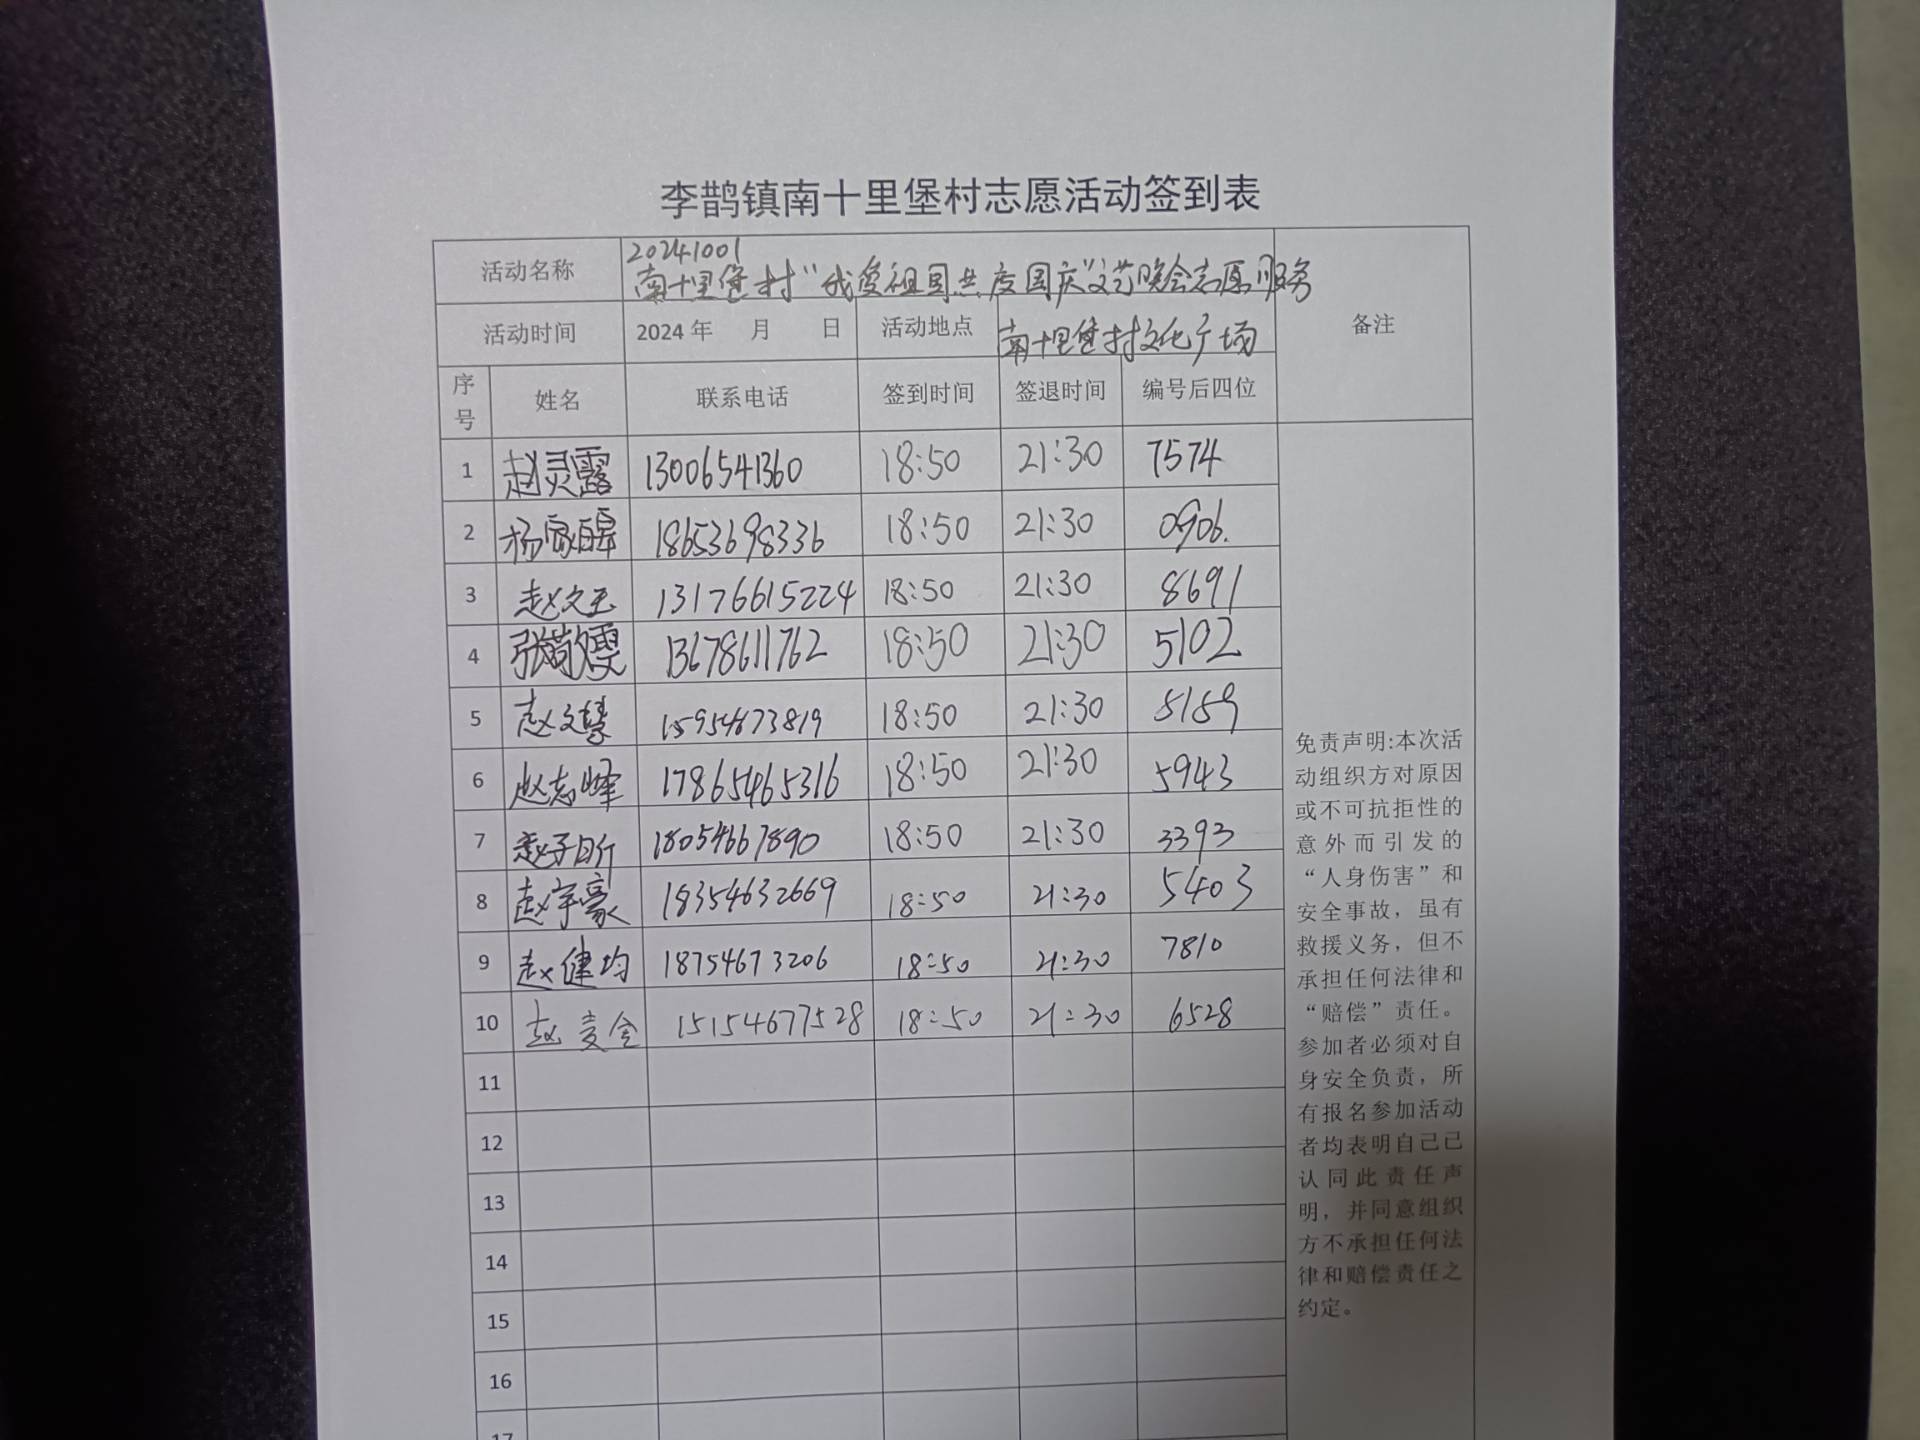 李鹊镇南十里堡村志愿活动签到表
活动名称
20241001
南十里堡村“我爱祖国共度国庆”文艺晚会志愿服务
备注
活动时间 2024年 月 日 活动地点 南十里堡村文化广场
序号 姓名 联系电话 签到时间 签退时间 编号后四位
1 赵灵露 13006541360 18:50 21:30 7574
2 杨家皞 18653698336 18:50 21:30 0906.
3 赵文玉 13176615224 18:50 21:30 8691
4 张敬雯 13678611762 18:50 21:30 5102
5 赵文慧 15954673819 18:50 21:30 8159
6 赵志峰 17865465316 18:50 21:30 5943
7 赵子昕 18054667890 18:50 21:30 3393
8 赵宇豪 18354632669 18:50 21:30 5403
9 赵健均 18754673206 18:50 21:30 7810
10 赵麦全 15154677528 18:50 21:30 6528
11
12
13
14
15
16
17
免责声明:本次活
动组织方对原因
或不可抗拒性的
意外而引发的
“人身伤害”和
安全事故，虽有
救援义务，但不
承担任何法律和
“赔偿”责任。
参加者必须对自
身安全负责，所
有报名参加活动
者均表明自己已
认同此责任声
明，并同意组织
方不承担任何法
律和赔偿责任之
约定。